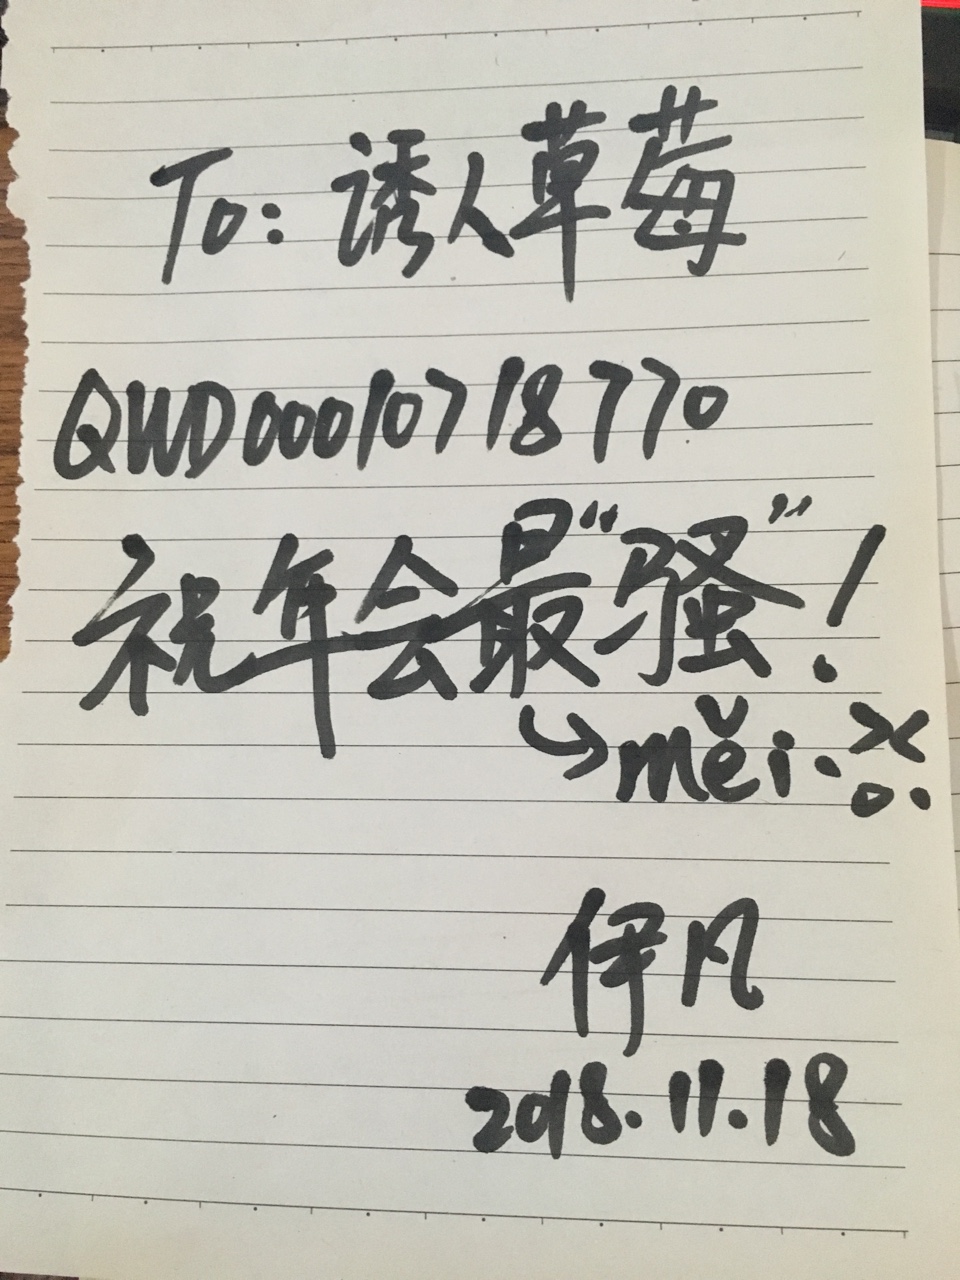 To: 诱人草莓
QWD00010718770
祝年会最“骚”！
měi.
伊凡
2018.11.18